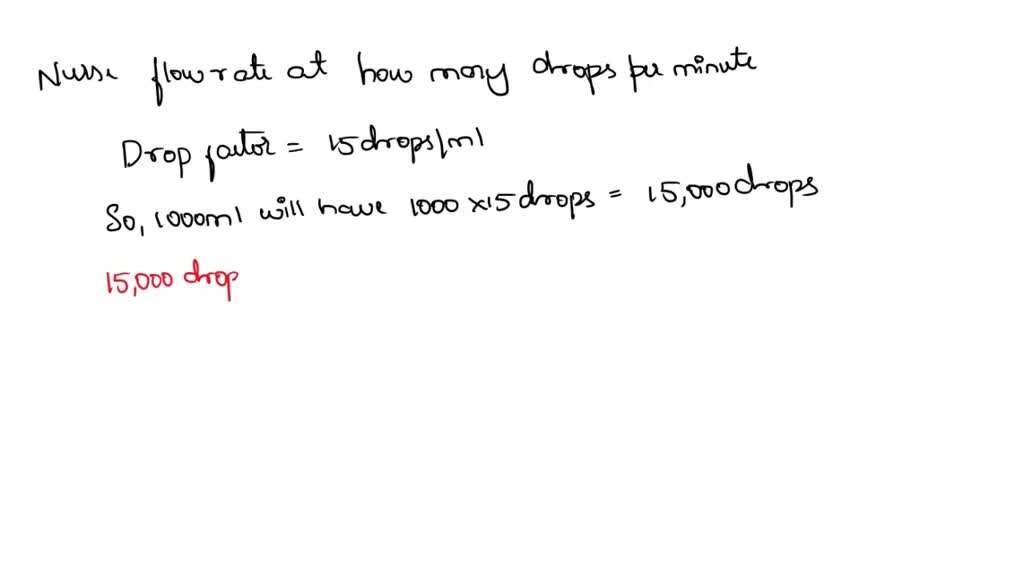 Nurse flow rate at how many drops per minute
Drop factor = 15 drops/ml
So, 1000ml will have 1000 x15 drops = 15,000 drops
15,000 drop